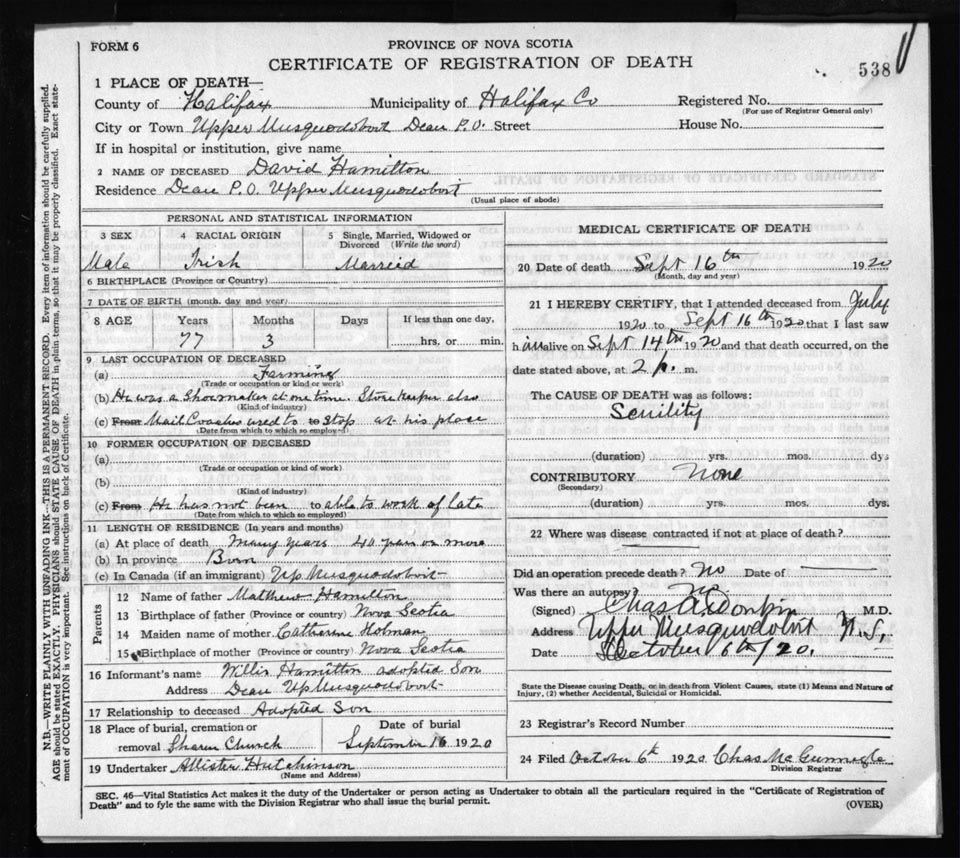 FORM 6
PROVINCE OF NOVA SCOTIA
CERTIFICATE OF REGISTRATION OF DEATH
538
1 PLACE OF DEATH—
County of Halifax Municipality of Halifax Co Registered No.
(For use of Registrar General only)
City or Town Upper Musquodoboit Dean P.O. Street House No.
If in hospital or institution, give name
2 NAME OF DECEASED David Hamilton
Residence Dean P.O. Upper Musquodoboit
(Usual place of abode)
PERSONAL AND STATISTICAL INFORMATION
3 SEX 4 RACIAL ORIGIN 5 Single, Married, Widowed or Divorced (Write the word)
Male Irish Marreid
6 BIRTHPLACE (Province or Country)
7 DATE OF BIRTH (month, day and year)
8 AGE Years Months Days If less than one day,
77 3 hrs. or min.
9 LAST OCCUPATION OF DECEASED
(a) Farming
(Trade or occupation or kind or work)
(b) He was a Shoemaker at one time. Store Keeper also
(Kind of industry)
(c) From Mail Coaches used to to Stop at his place
(Date from which to which so employed)
10 FORMER OCCUPATION OF DECEASED
(a)
(Trade or occupation or kind of work)
(b)
(Kind of industry)
(c) From He has not been to able to work of late
(Date from which to which so employed)
11 LENGTH OF RESIDENCE (In years and months)
(a) At place of death Many years 40 years or more
(b) In province Born
(c) In Canada (if an immigrant) Up Musquodoboit
Parents
12 Name of father Mathew Hamilton
13 Birthplace of father (Province or country) Nova Scotia
14 Maiden name of mother Catharine Holman
15 Birthplace of mother (Province or country) Nova Scotia
16 Informant's name Willis Hamilton adopted Son
Address Dean Up Musquodoboit
17 Relationship to deceased Adopted Son
18 Place of burial, cremation or Date of burial
removal Sharon Church September 16 1920
19 Undertaker Allister Hutchinson
(Name and Address)
MEDICAL CERTIFICATE OF DEATH
20 Date of death Sept 16th 1920
(Month, day and year)
21 I HEREBY CERTIFY, that I attended deceased from July
1920 to Sept 16th 1920 that I last saw
him alive on Sept 14th 1920 and that death occurred, on the
date stated above, at 2 p. m.
The CAUSE OF DEATH was as follows:
Senility
(duration) yrs. mos. dys
CONTRIBUTORY None
(Secondary)
(duration) yrs. mos. dys.
22 Where was disease contracted if not at place of death?
Did an operation precede death? No Date of
Was there an autopsy? No
(Signed) Chas A. Donkin M.D.
Address Upper Musquodoboit N.S.
Date October 6th/20.
State the Disease causing Death, or in death from Violent Causes, state (1) Means and Nature of
Injury, (2) whether Accidental, Suicidal or Homicidal.
23 Registrar's Record Number
24 Filed October 6th 1920 Chas
Division Registrar
SEC. 46—Vital Statistics Act makes it the duty of the Undertaker or person acting as Undertaker to obtain all the particulars required in the "Certificate of Registration of
Death" and to fyle the same with the Division Registrar who shall issue the burial permit.
(OVER)
N.B.—WRITE PLAINLY WITH UNFADING INK—THIS IS A PERMANENT RECORD. Every item of information should be carefully supplied.
AGE should be stated EXACTLY. PHYSICIANS should STATE CAUSE OF DEATH in plain terms, so that it may be properly classified. Exact state-
ment of OCCUPATION is very important. See instructions on back of Certificate.